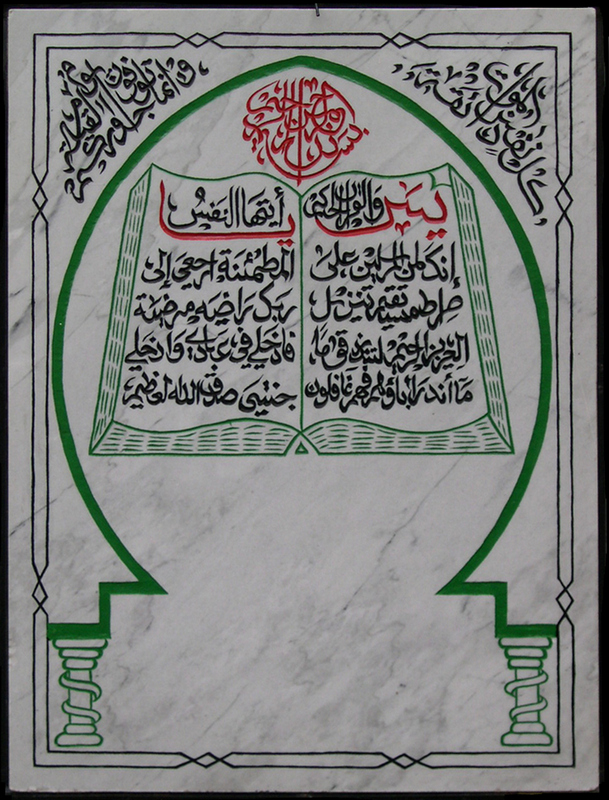 كل نفس ذائقة الموت
وانما توفون اجوركم يوم القيامة
بسم الله الرحمن الرحيم
يس والقرآن الحكيم
إنك لمن المرسلين على
صراط مستقيم تنزيل
العزيز الرحيم لتنذر قوما
ما أنذر آباؤهم فهم غافلون
يا أيتها النفسُ
المطمئنة ارجعي إلى
ربك راضية مرضية
فادخلي في عبادي وادخلي
جنتي صدق الله العظيم